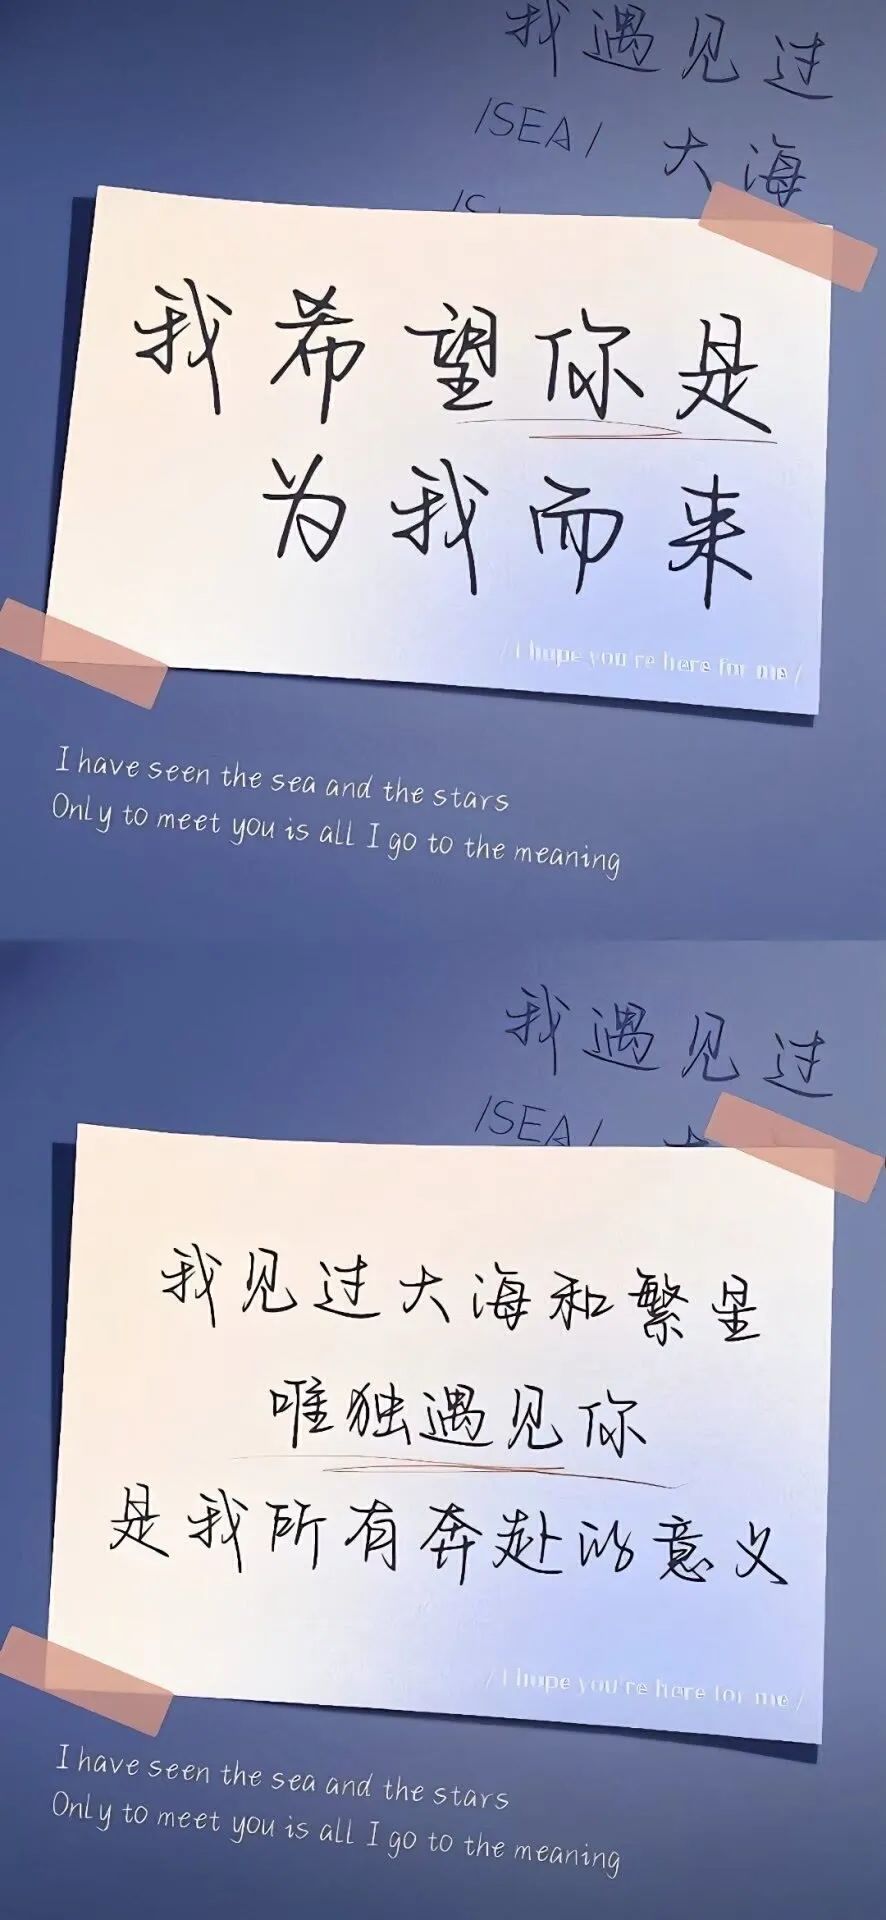 我遇见过
/SEA/ 大海
我希望你是
为我而来
/ I hope you're here for me /
I have seen the sea and the stars
Only to meet you is all I go to the meaning
我遇见过
/SEA/
我见过大海和繁星
唯独遇见你
是我所有奔赴的意义
/ I hope you're here for me /
I have seen the sea and the stars
Only to meet you is all I go to the meaning